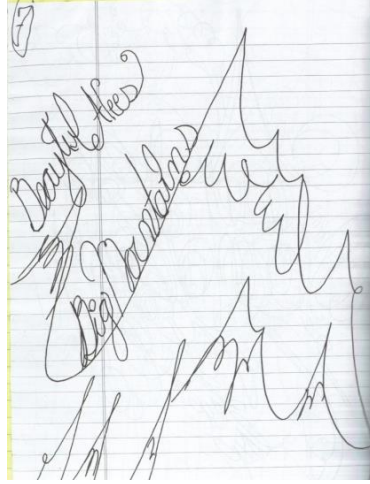 7
Beautiful trees
Big Mountains